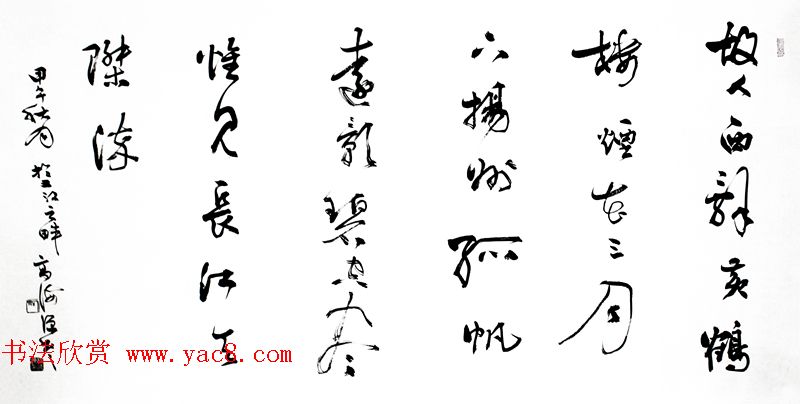 故人西辭黄鶴
樓煙花三月
下揚州孤帆
遠影碧空尽
惟見長江天
際流
甲午秋月
書法欣赏 www.yac8.com